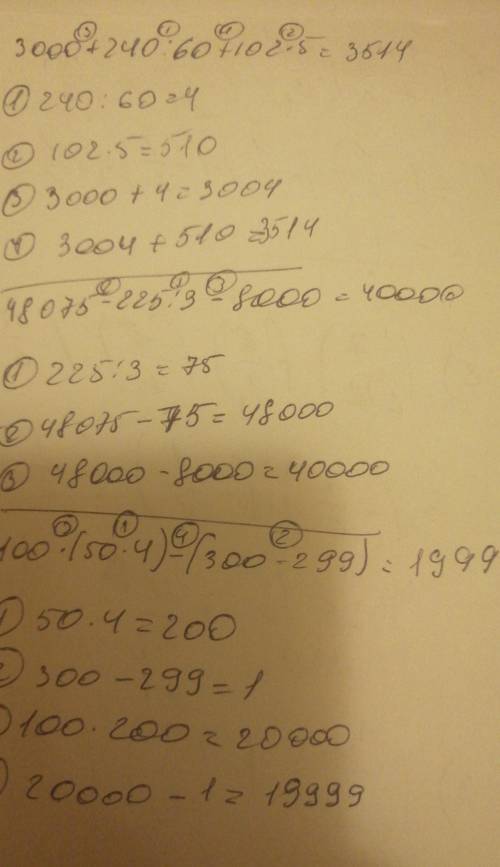 3000+240:60+102·5=3514
① 240:60=4
② 102·5=510
③ 3000+4=3004
④ 3004+510=3514
48075-225:3-8000=40000
① 225:3=75
② 48075-75=48000
③ 48000-8000=40000
100·(50·4)-(300-299)=1999
① 50·4=200
② 300-299=1
100·200=20000
20000-1=19999